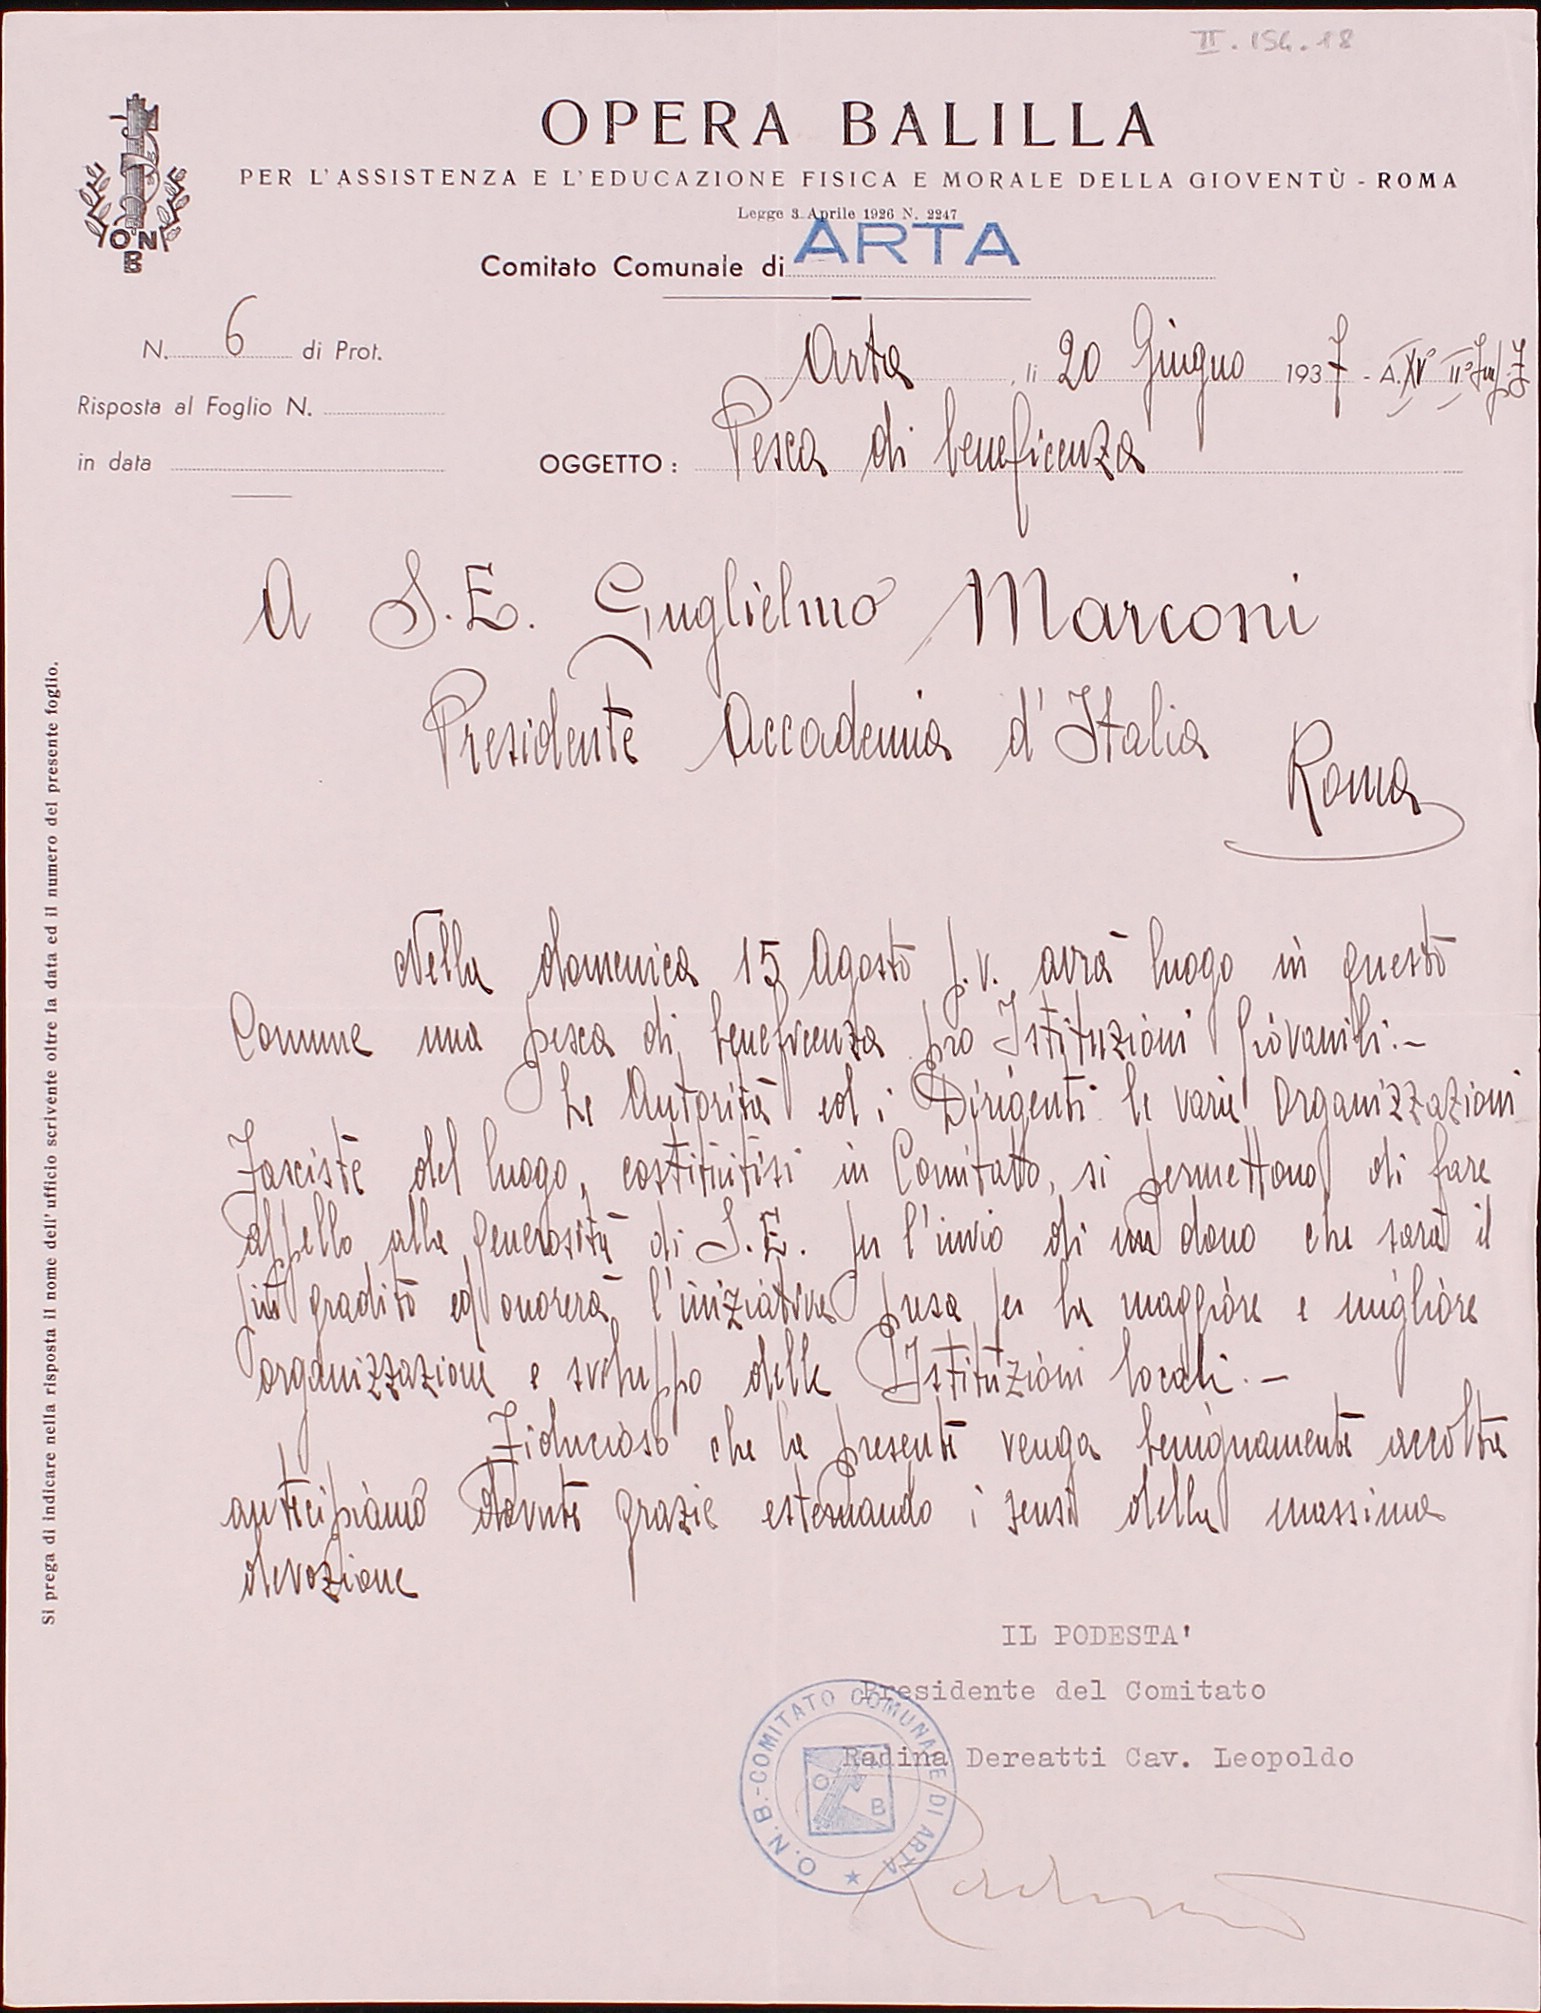 II.154.18
OPERA BALILLA
PER L'ASSISTENZA E L'EDUCAZIONE FISICA E MORALE DELLA GIOVENTÙ - ROMA
Legge 3 Aprile 1926 N. 2247
O N B
Comitato Comunale di ARTA
N. 6 di Prot.
Arta, li 20 Giugno 1937 - A. XV° II°
Risposta al Foglio N.
in data
OGGETTO: Pesca di beneficenza
A S.E. Guglielmo Marconi
Presidente Accademia d'Italia
Roma
Nella domenica 15 Agosto p.v. avrà luogo in questo
Comune una pesca di beneficenza pro Istituzioni Giovanili.-
Le Autorità ed i Dirigenti le varie Organizzazioni
Fasciste del luogo, costituitisi in Comitato, si permettono di fare
appello alla generosità di S.E. per l'invio di un dono che sarà il
più gradito ed onorerà l'iniziativa presa per la maggiore e migliore
organizzazione e sviluppo delle Istituzioni locali.-
Fiducioso che la presente venga benignamente accolta
anticipiamo dovute grazie esternando i sensi della massima
devozione
IL PODESTA'
Presidente del Comitato
Radina Dereatti Cav. Leopoldo
O.N.B.-COMITATO COMUNALE DI ARTA
O N B
Si prega di indicare nella risposta il nome dell'ufficio scrivente oltre la data ed il numero del presente foglio.